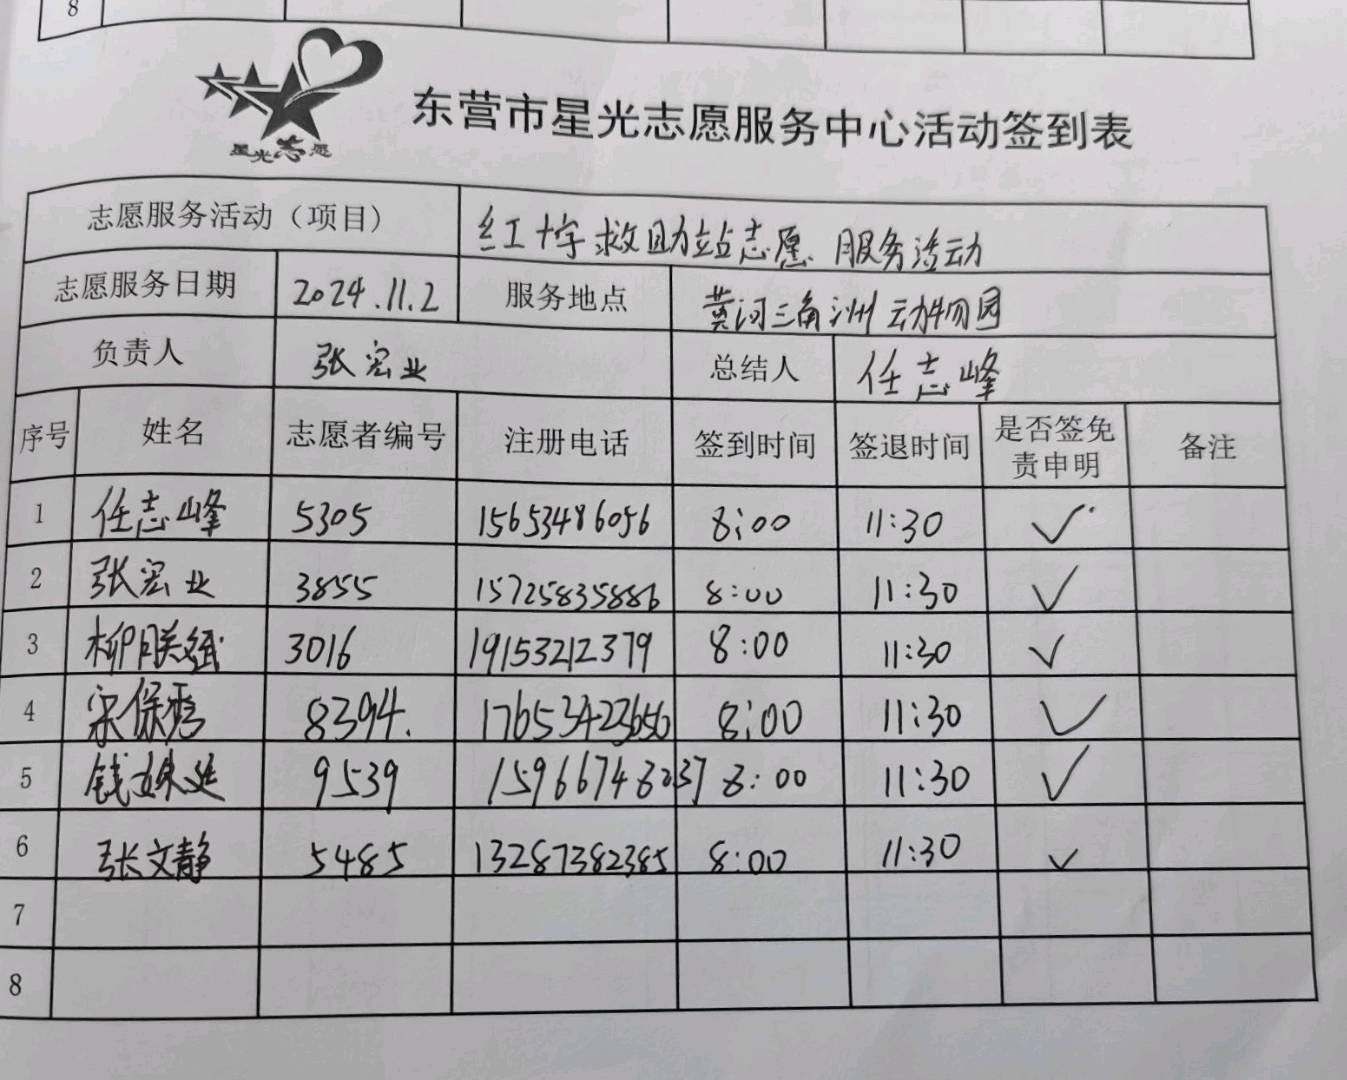 8
星光志愿
东营市星光志愿服务中心活动签到表
志愿服务活动（项目） 红十字救助站志愿服务活动
志愿服务日期 2024.11.2 服务地点 黄河三角洲动物园
负责人 张宏业 总结人 任志峰
序号 姓名 志愿者编号 注册电话 签到时间 签退时间 是否签免责申明 备注
1 任志峰 5305 15653486056 8:00 11:30 ✓
2 张宏业 3855 15725835886 8:00 11:30 ✓
3 柳朕斌 3016 19153212379 8:00 11:30 ✓
4 宋保秀 8394. 17653423656 8:00 11:30 ✓
5 钱姝延 9539 15966748237 8:00 11:30 ✓
6 张文静 5485 13287382385 8:00 11:30 ✓
7
8